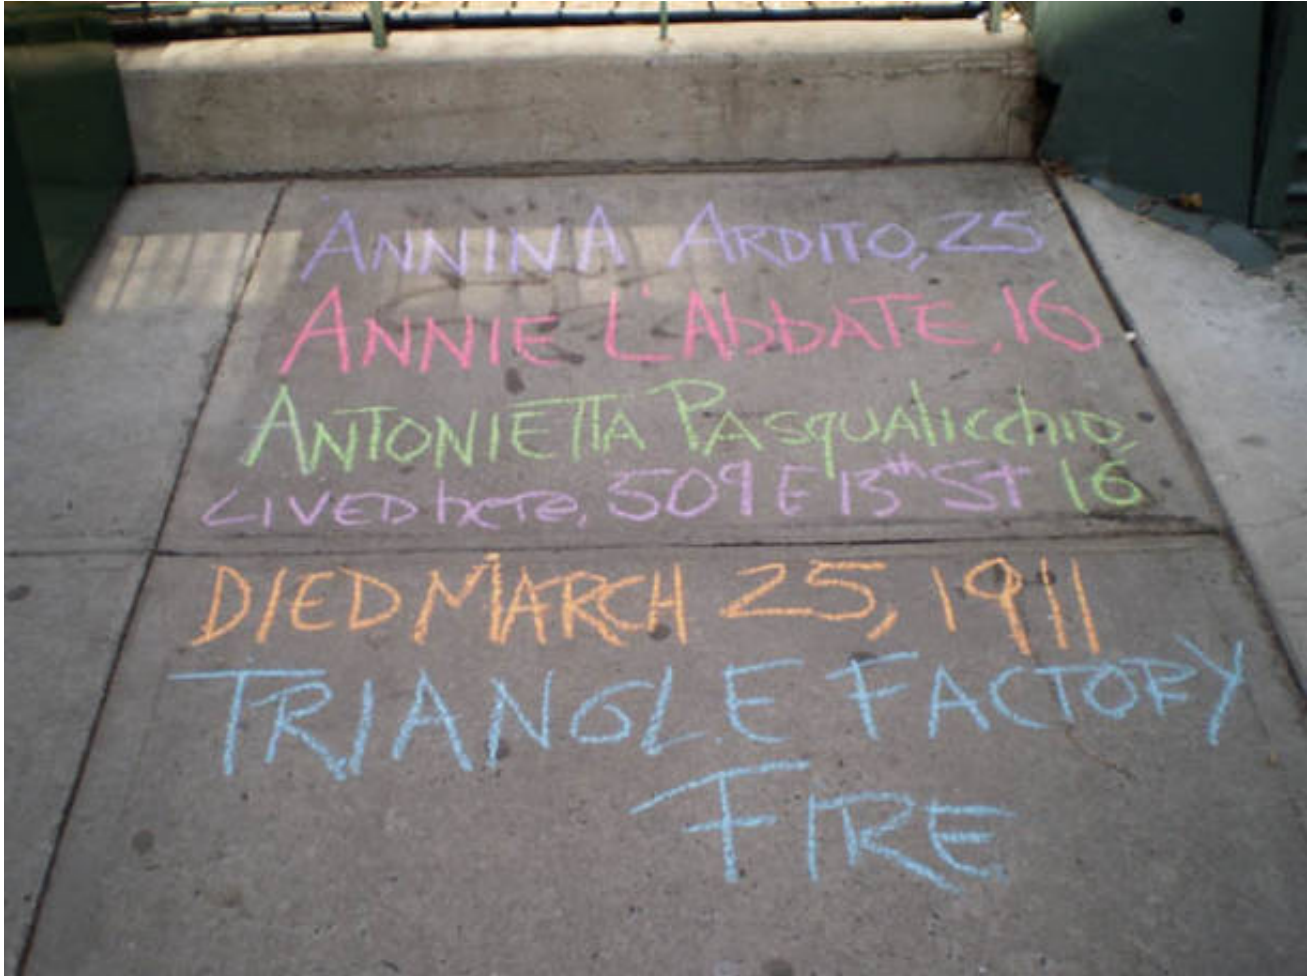 ANNINA ARDITO, 25
ANNIE L'AbbATE, 16
ANTONIETTA PASquAlicchio,
LIVED here, 509 E 13th St 16
DIED MARCH 25, 1911
TRIANGLE FACTORY
FIRE